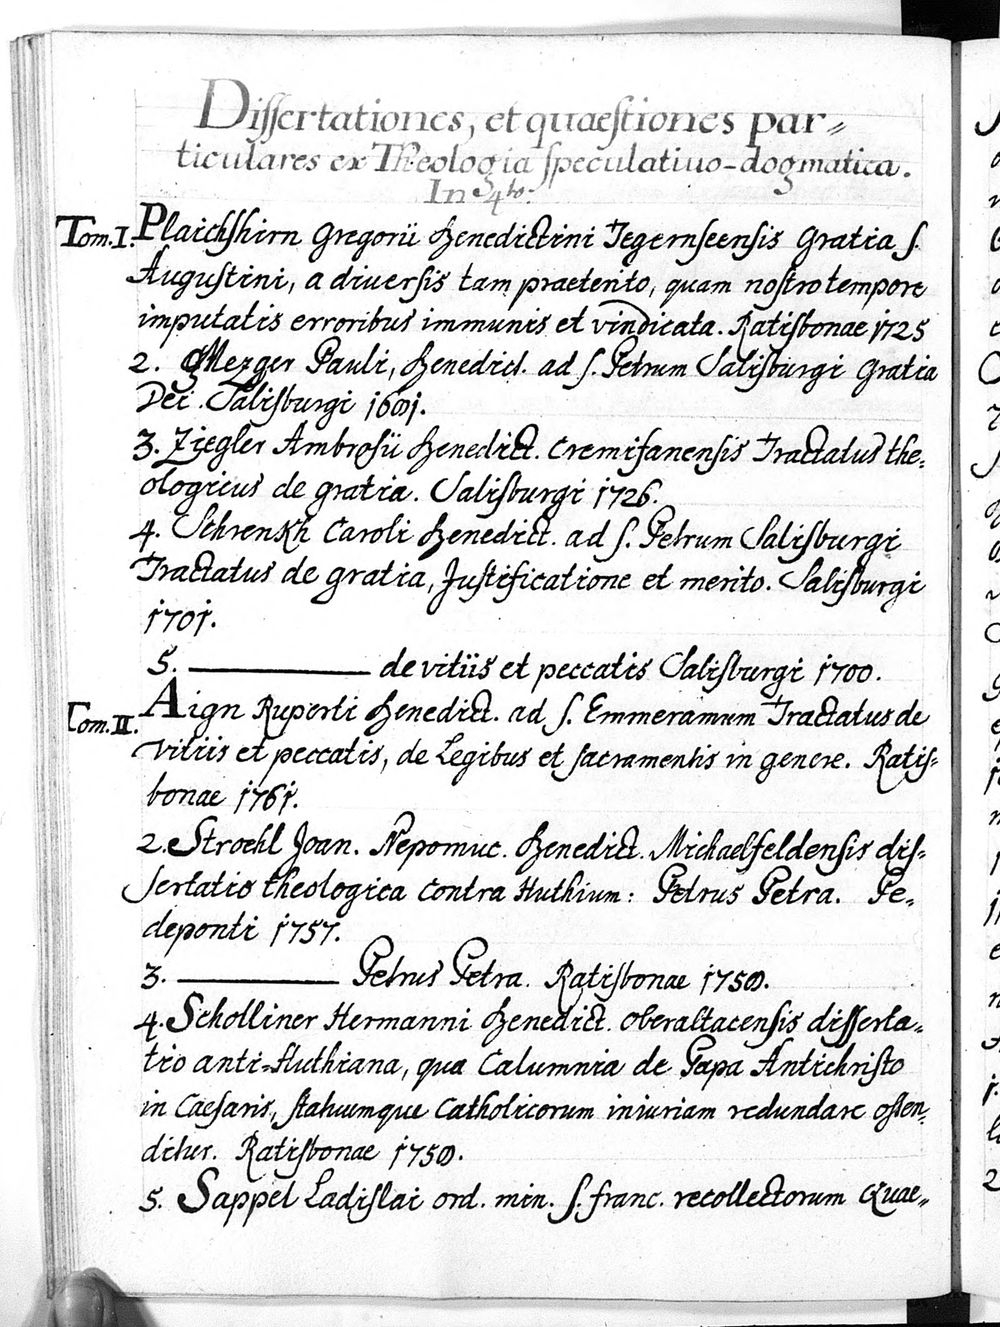 Dissertationes, et quaestiones par=
ticulares ex Theologia speculativo-dogmatica.
In 4to.
Tom. I. Plaichshirn Gregorii Benedictini Tegernseensis Gratia S.
Augustini, a diversis tam praeterito, quam nostro tempore
imputatis erroribus immunis et vindicata. Ratisbonae 1725
2. Mezger Pauli, Benedict. ad S. Petrum Salisburgi Gratia
Dei. Salisburgi
3. Ziegler Ambrosii Benedict. Cremifanensis Tractatus the=
ologicus de gratia. Salisburgi 1726.
4. Schrenkh Caroli Benedict. ad S. Petrum Salisburgi
Tractatus de gratia, Justificatione et merito. Salisburgi
1701.
5. ———— de vitiis et peccatis Salisburgi 1700.
Tom. II. Aign Ruperti Benedict. ad S. Emmeramum Tractatus de
vitiis et peccatis, de Legibus et sacramentis in genere. Ratis=
bonae 1761.
2. Stroehl Joan. Nepomuc. Benedict. Michaelfeldensis dis=
sertatio theologica contra Huthium: Petrus Petra. Pe=
deponti 1757.
3. ———— Petrus Petra. Ratisbonae
4. Scholliner Hermanni Benedict. Oberaltacensis disserta=
tio anti-Huthiana, qua Calumnia de Papa Antichristo
in Caesaris, statuumque Catholicorum iniuriam redundare osten=
ditur. Ratisbonae
5. Sappel Ladislai ord. min. S. franc. recollectorum Quae=